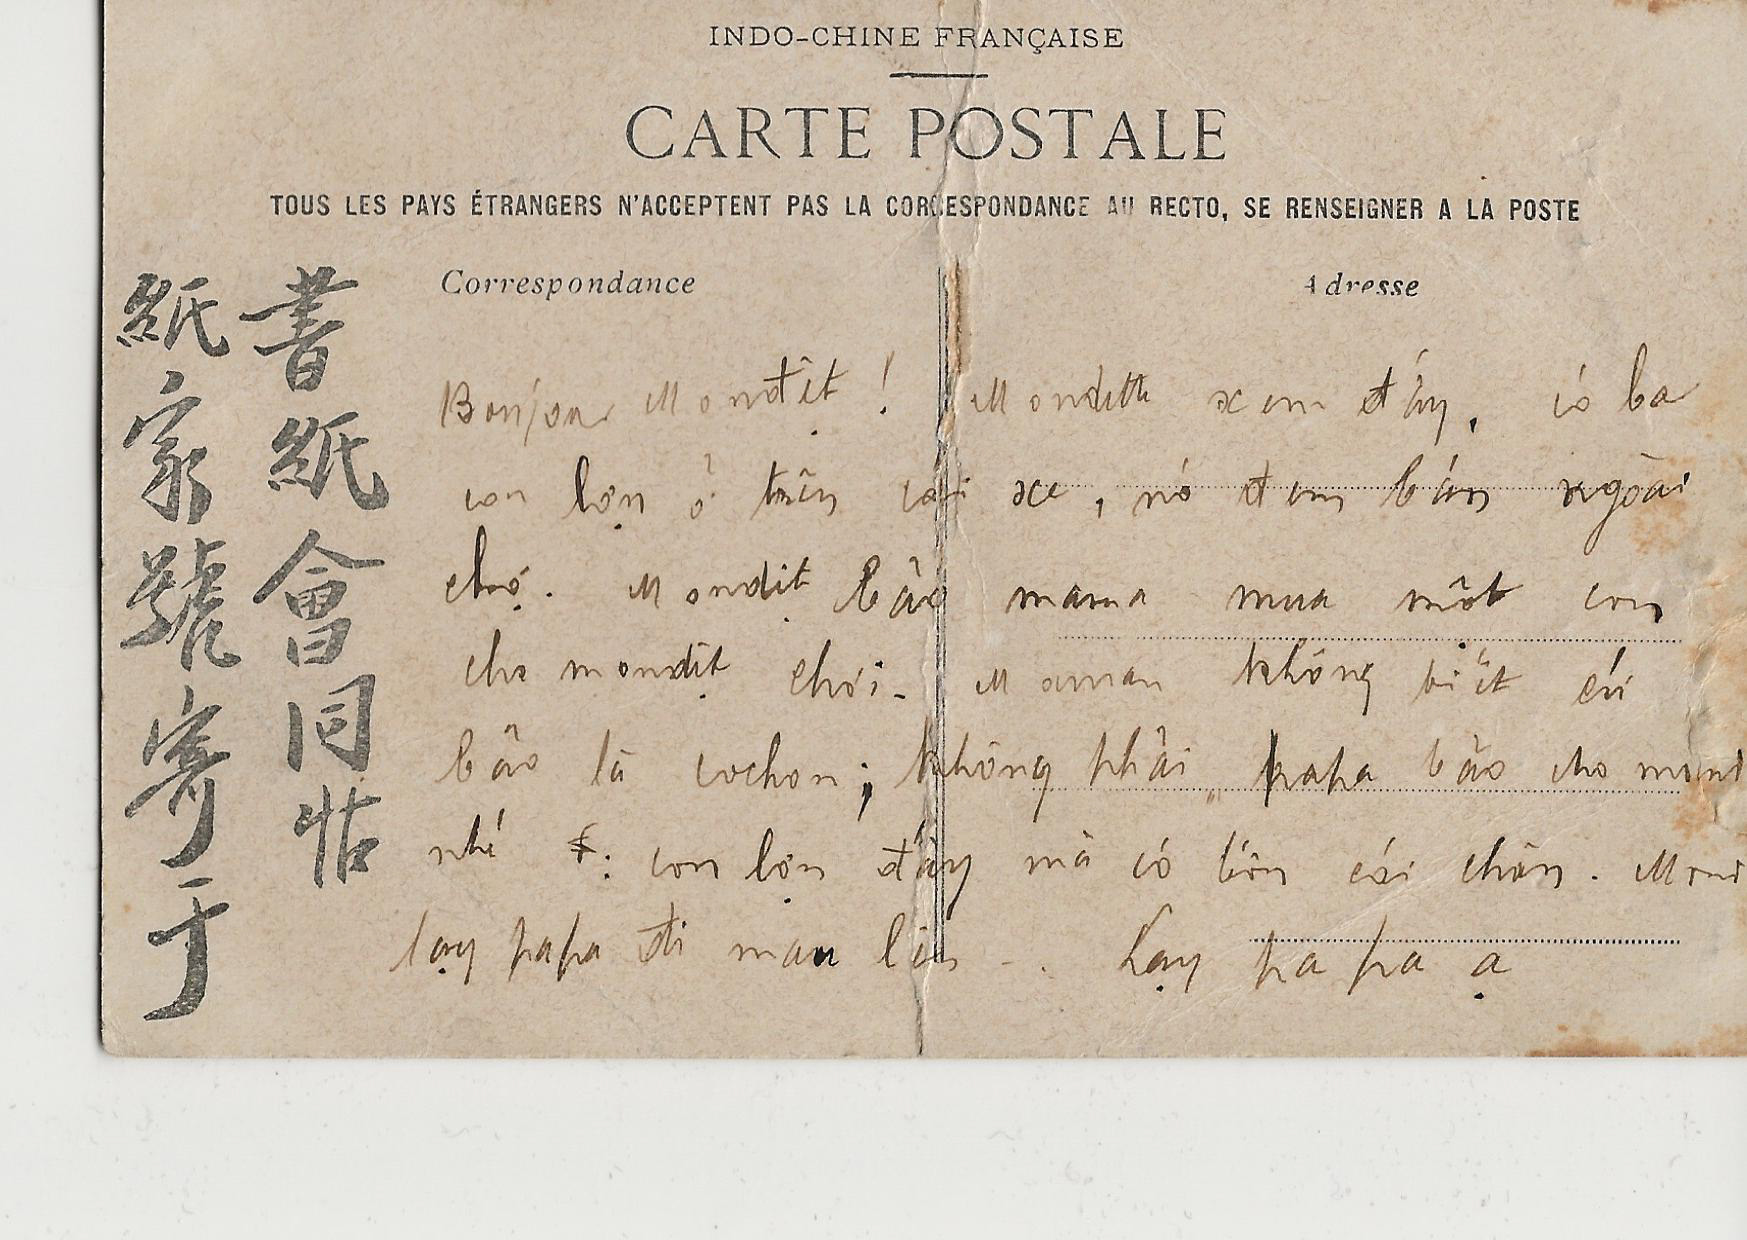 INDO-CHINE FRANÇAISE
CARTE POSTALE
TOUS LES PAYS ÉTRANGERS N'ACCEPTENT PAS LA CORRESPONDANCE AU RECTO, SE RENSEIGNER A LA POSTE
Correspondance
Adresse
書紙會同帖
紙家號寄于
Bonjour Mondịt ! Monditt xem đây, có ba
con lợn ở trên cái xe, nó đem bán ngoài
chợ. Mondịt bảo mama mua một con
cho mondịt chơi. Maman không biết cứ
bảo là cochon ; không phải papa bảo cho mond
nhé : con lợn đây mà có bốn cái chân. Mond
lạy papa đi mau lên .. Lạy papa ạ